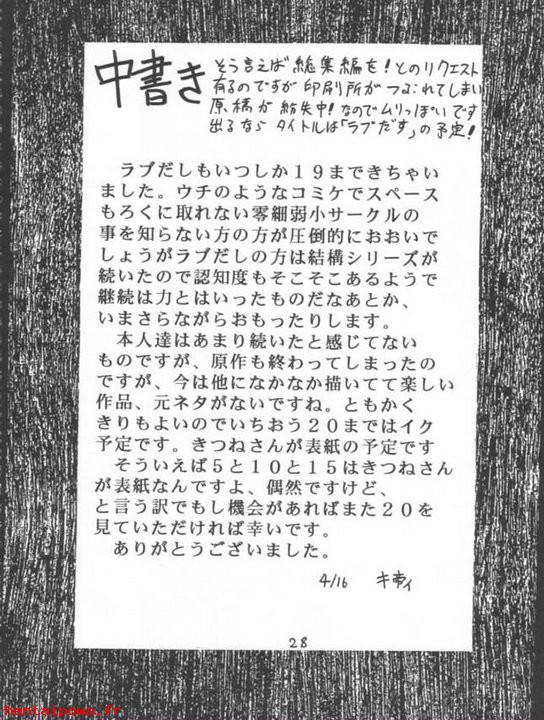 中書き
そう言えば総集編を!とのリクエスト
有るのですが印刷所がつぶれてしまい
原稿が紛失中!なのでムリっぽいです
出るならタイトルは「ラブだす」の予定!
ラブだしもいつしか19まできちゃい
ました。ウチのようなコミケでスペース
もろくに取れない零細弱小サークルの
事を知らない方の方が圧倒的におおいで
しょうがラブだしの方は結構シリーズが
続いたので認知度もそこそこあるようで
継続は力とはいったものだなあとか、
いまさらながらおもったりします。
本人達はあまり続いたと感じてない
ものですが、原作も終わってしまったの
ですが、今は他になかなか描いてて楽しい
作品、元ネタがないですね。ともかく
きりもよいのでいちおう20まではイク
予定です。きつねさんが表紙の予定です
そういえば5と10と15はきつねさん
が表紙なんですよ、偶然ですけど、
と言う訳でもし機会があればまた20を
見ていただければ幸いです。
ありがとうございました。
4/16
28
hentaipowa.fr